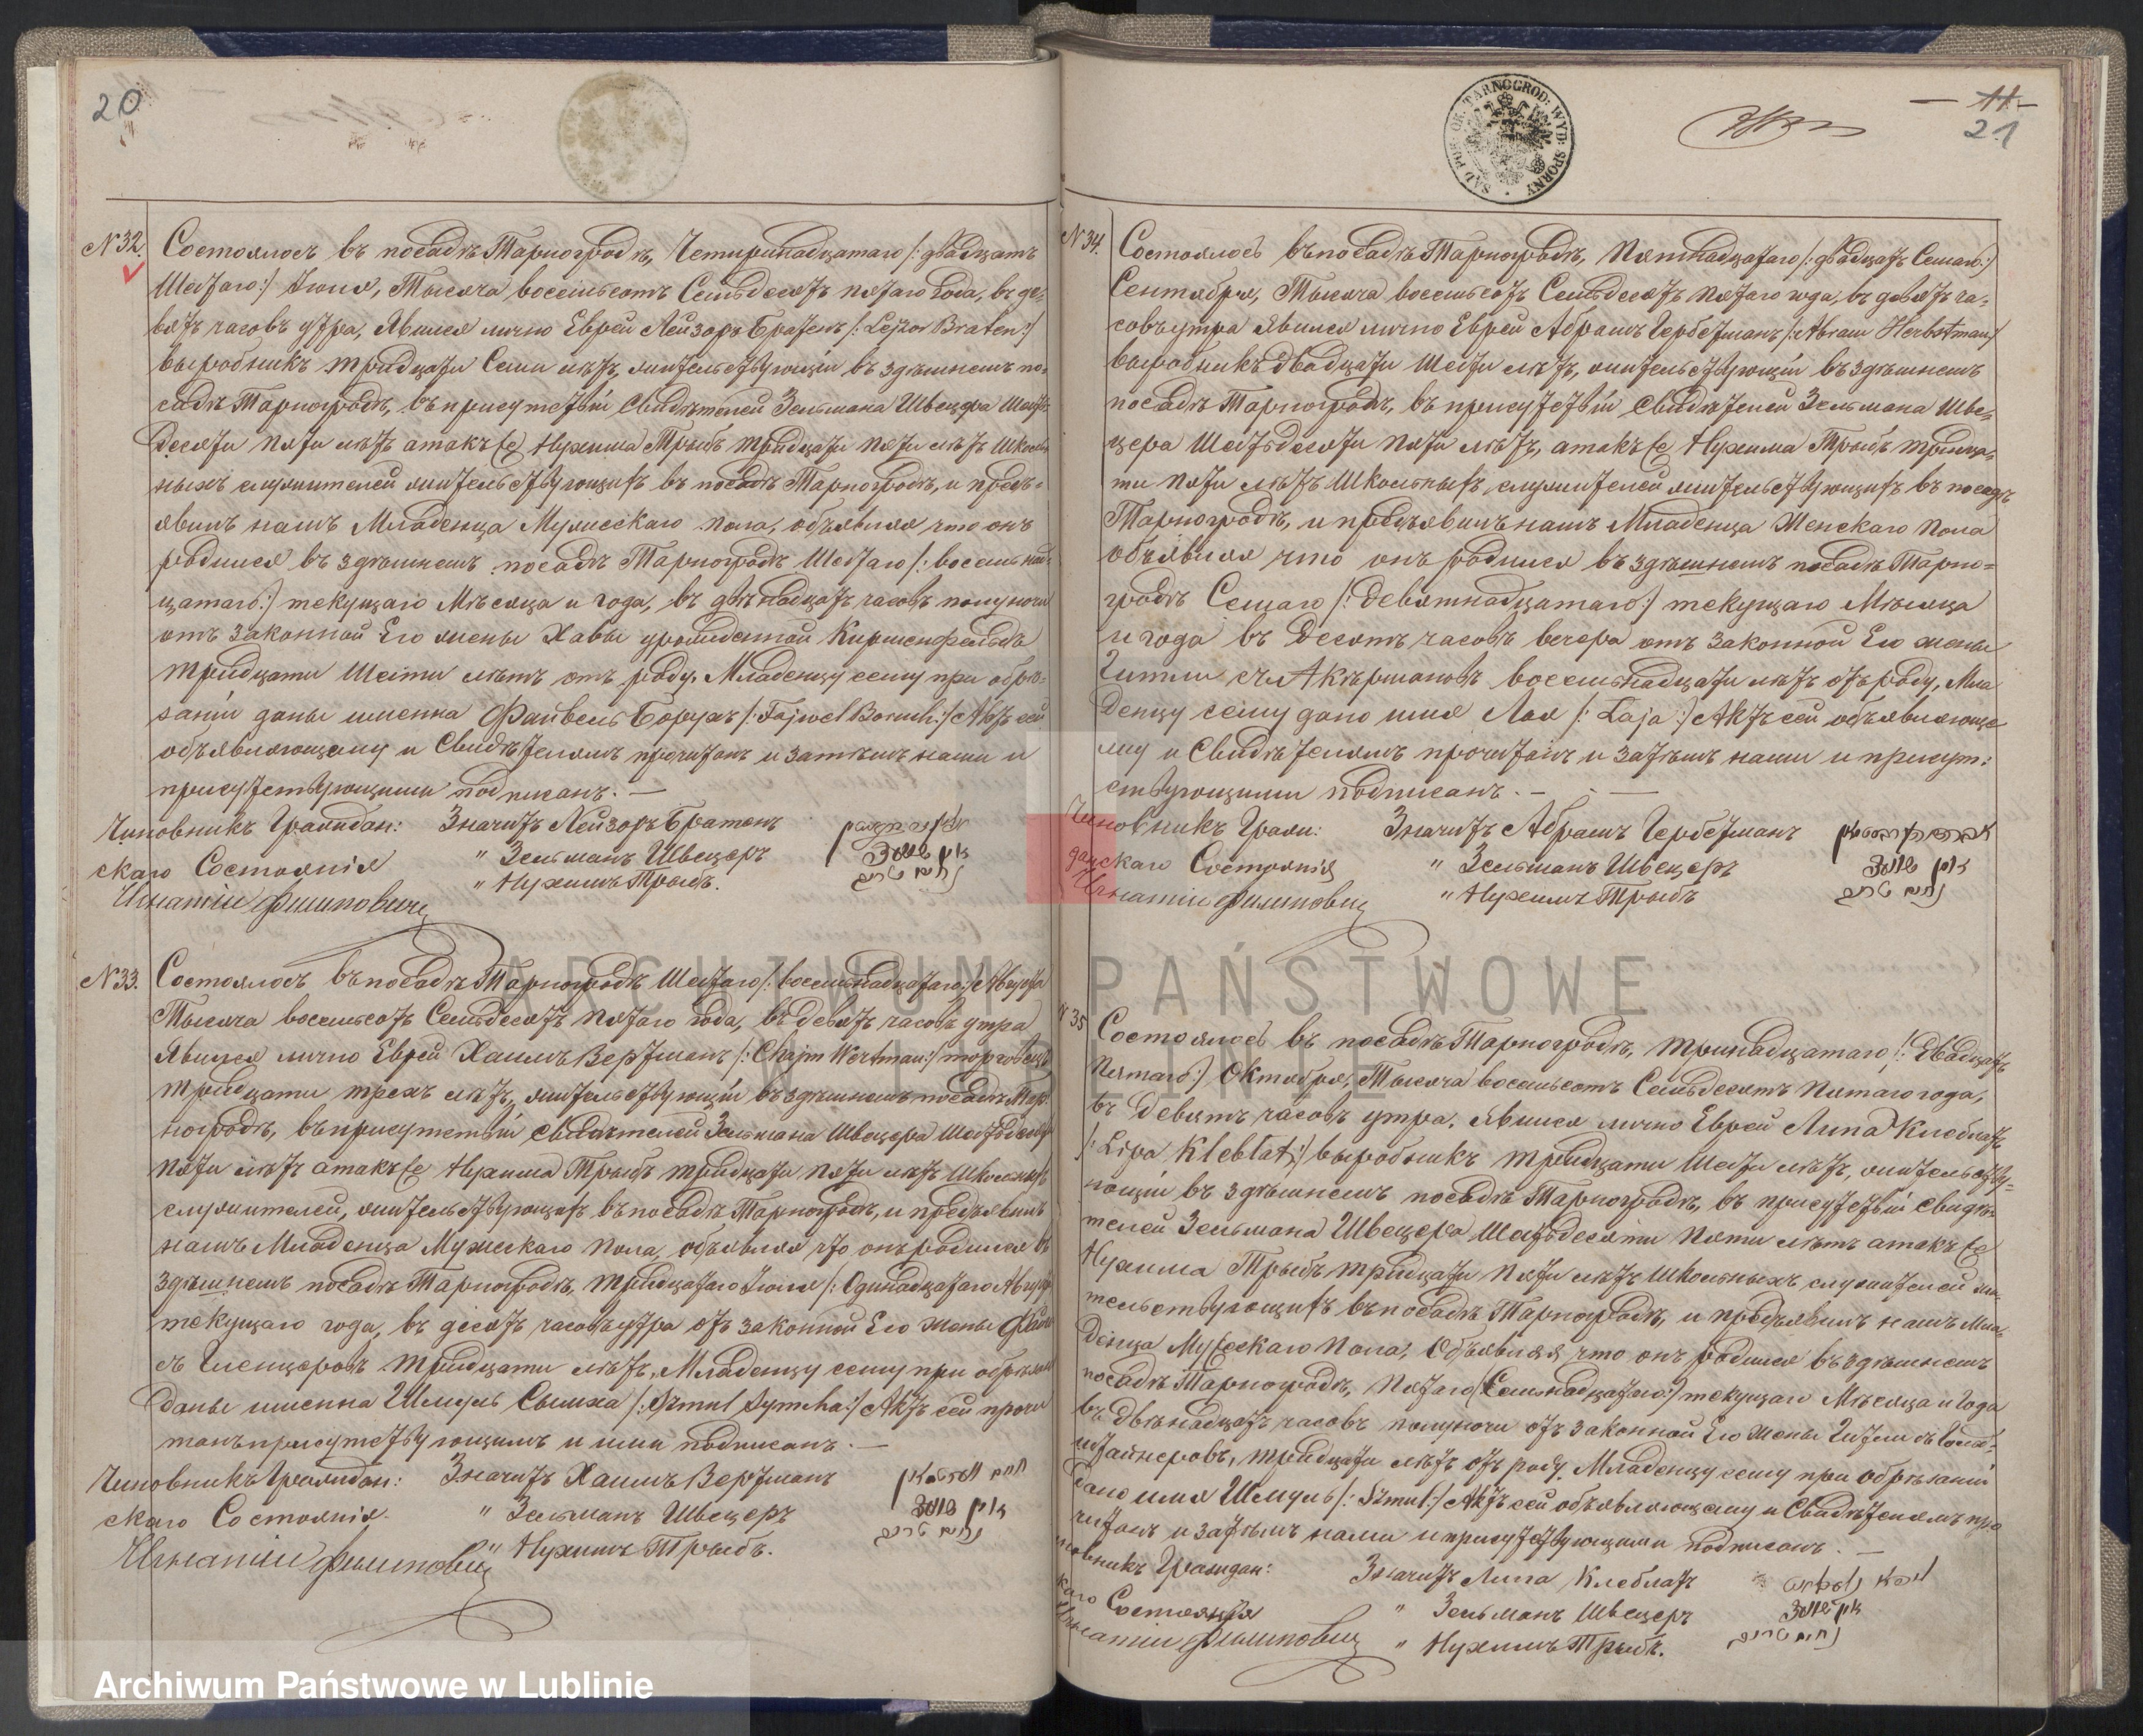 20
N 32.
Состоялось въ посадѣ Тарногродѣ, Четырнадцатаго /: двадцать
Шестаго :/ Іюня, Тысяча восемьсотъ Семьдесятъ пятаго Года, въ де-
вять часовъ утра, Явился лично Еврей Лейзоръ Братенъ /: Lejzor Braten :/
выробникъ тридцати Семи лѣтъ, жительствующій въ здѣшнемъ по-
садѣ Тарногродѣ, въ присутствіи Свидѣтелей Зельмана Швецера Шесть-
десяти пяти лѣтъ а такъ же Нухима Трыбъ тридцати пяти лѣтъ Школь-
ныхъ служителей жительствующихъ въ посадѣ Тарногродѣ, и предъ-
явилъ намъ Младенца Мужескаго пола, объявляя что онъ
родился въ здѣшнемъ посадѣ Тарногродѣ Шестаго /: восемьнад-
цатаго :/ текущаго Мѣсяца и года, въ двѣнадцать часовъ полуночи
отъ законной Его жены Хавы урожденной Киршенфельдъ
тридцати Шести лѣтъ отъ роду. Младенцу сему при обрѣ-
заніи даны имена Файвель Борухъ /: Fajwel Boruch :/ Актъ сей
объявляющему и Свидѣтелямъ прочитанъ и затѣмъ нами и
присутствующими подписанъ. —
Чиновникъ Граждан: Значитъ Лейзоръ Братенъ
скаго Состоянія " Зельманъ Швецеръ
" Нухимъ Трыбъ.
Игнатій Филиповичъ
N 33.
Состоялось въ посадѣ Тарногродѣ Шестаго /: восемьнадцатаго :/ Августа
Тысяча восемьсотъ Семьдесятъ пятаго года, въ девять часовъ утра
Явился лично Еврей Хаимъ Вертманъ /: Chajm Wertman :/ торговецъ
тридцати трехъ лѣтъ, жительствующій въ здѣшнемъ посадѣ Тар-
ногродѣ, въ присутствіи свидѣтелей Зельмана Швецера Шестьдесяти
пяти лѣтъ а такъ же Нухима Трыбъ тридцати пяти лѣтъ Школьныхъ
служителей, жительствующихъ въ посадѣ Тарногродѣ, и предъявилъ
намъ Младенца Мужескаго пола, объявляя что онъ родился въ
здѣшнемъ посадѣ Тарногродѣ, тридцатаго Іюля /: Одинадцатаго Августа
текущаго года, въ десять часовъ утра отъ законной Его жены
съ тридцати лѣтъ, Младенцу сему при обрѣзаніи
даны имена Шмуль Сымха /: Szmul Symcha :/ Актъ сей прочи-
танъ присутствующимъ и ими подписанъ. —
Чиновникъ Граждан: Значитъ Хаимъ Вертманъ
скаго Состоянія. " Зельманъ Швецеръ
" Нухимъ Трыбъ.
Игнатій Филиповичъ
SĄD POK. OK. TARNOGROD: WYD: SPORNY
— 11 —
21
N 34.
Состоялось въ посадѣ Тарногродѣ, Пятнадцатаго /: двадцать Семаго :/
Сентября, Тысяча восемьсотъ Семьдесятъ пятаго года, въ девять ча-
совъ утра Явился лично Еврей Абрамъ Гербстманъ /: Abram Herbstman :/
выробникъ двадцати Шести лѣтъ, жительствующій въ здѣшнемъ
посадѣ Тарногродѣ, въ присутствіи Свидѣтелей Зельмана Шве-
цера Шестьдесяти пяти лѣтъ, а такъ же Нухима Трыбъ тридца-
ти пяти лѣтъ Школьныхъ служителей жительствующихъ въ посадѣ
Тарногродѣ, и предъявилъ намъ Младенца Женскаго пола
объявляя что онъ родился въ здѣшнемъ посадѣ Тарно-
гродѣ Семаго /: девятнадцатаго :/ текущаго Мѣсяца
и года въ десять часовъ вечера отъ законной Его жены
Гитли съ Акермановъ восемьнадцати лѣтъ отъ роду, Мла
денцу сему дано имя Лая /: Łaja :/ Актъ сей объявляюще-
му и Свидѣтелямъ прочитанъ и затѣмъ нами и присут:
ствующими подписанъ. —
Чиновникъ Граж: Значитъ Абрамъ Гербстманъ
данскаго Состоянія " Зельманъ Швецеръ
Игнатій Филиповичъ " Нухимъ Трыбъ
N 35
Состоялось въ посадѣ Тарногродѣ, тринадцатаго /: двадцать
Пятаго :/ Октября, Тысяча восемьсотъ Семьдесятъ Пятаго года,
въ девять часовъ утра, явился лично Еврей Липа Клеблатъ
/: Lipa Kleblat :/ выробникъ тридцати Шести лѣтъ, жительству-
ющій въ здѣшнемъ посадѣ Тарногродѣ, въ присутствіи Свидѣ-
телей Зельмана Швецера Шестьдесяти пяти лѣтъ а такъ же
Нухима Трыбъ тридцати пяти лѣтъ Школьныхъ служителей жи-
тельствующихъ въ посадѣ Тарногродѣ, и предъявилъ намъ Мла-
денца Мужескаго пола, Объявляя что онъ родился въ здѣшнемъ
посадѣ Тарногродѣ, Пятаго /: Семнадцатаго :/ текущаго Мѣсяца и года
въ двѣнадцать часовъ полуночи отъ законной Его жены Гители съ
тридцати лѣтъ отъ роду, Младенцу сему при обрѣзаніи
дано имя Шмуль /: Szmul :/ Актъ сей объявляющему и Свидѣтелямъ про
читанъ и затѣмъ нами и присутствующими подписанъ. —
Чиновникъ Граждан: Значитъ Липа Клеблатъ
скаго Состоянія " Зельманъ Швецеръ
Игнатій Филиповичъ " Нухимъ Трыбъ.
ARCHIWUM PAŃSTWOWE
W LUBLINIE
Archiwum Państwowe w Lublinie